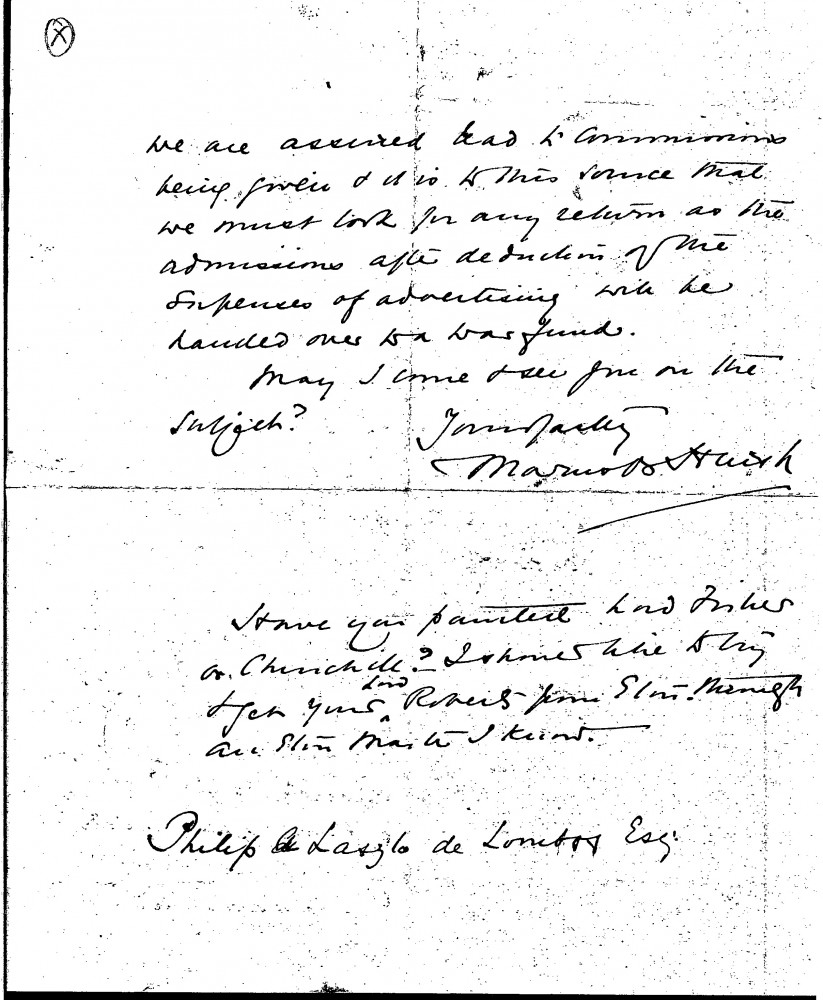 X
we are assured lead to Commissions
being given & it is to this source that
we must look for any return as the
admissions after deduction of the
Expenses of advertising will be
handed over to a War Fund.
May I come & see you on the
Subject?
Yours faithy
Marcus B Huish
Have you painted Lord Fisher
or Churchill? I should like to try
& get your Lord Roberts from Eton through
an Eton Master I know.
Philip A Laszlo de Lombos Esq